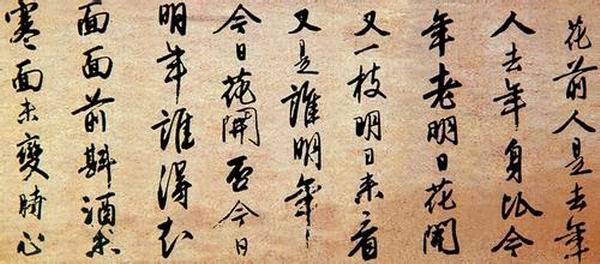 花前人是去年
人去年身比今
年老明日花開
又一枝明日来看
又是誰明年
今日花開否今日
明年誰得知
面面前斟酒未
寒面未變時心